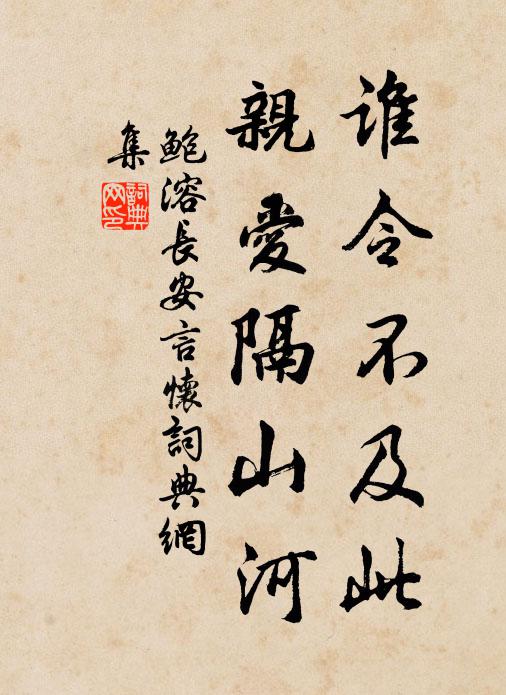 誰令不及此
親愛隔山河
鲍溶長安言懷詞典網
集
詞典
网印